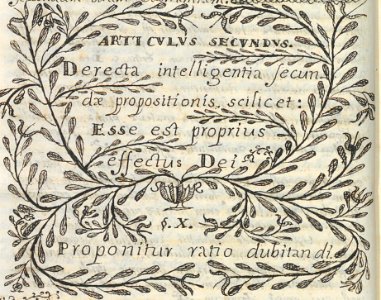 ARTICULUS SECUNDUS.
Derecta intelligentia secun
dæ propositionis scilicet:
Esse est proprius
effectus Dei
§. X.
Proponitur ratio dubitandi